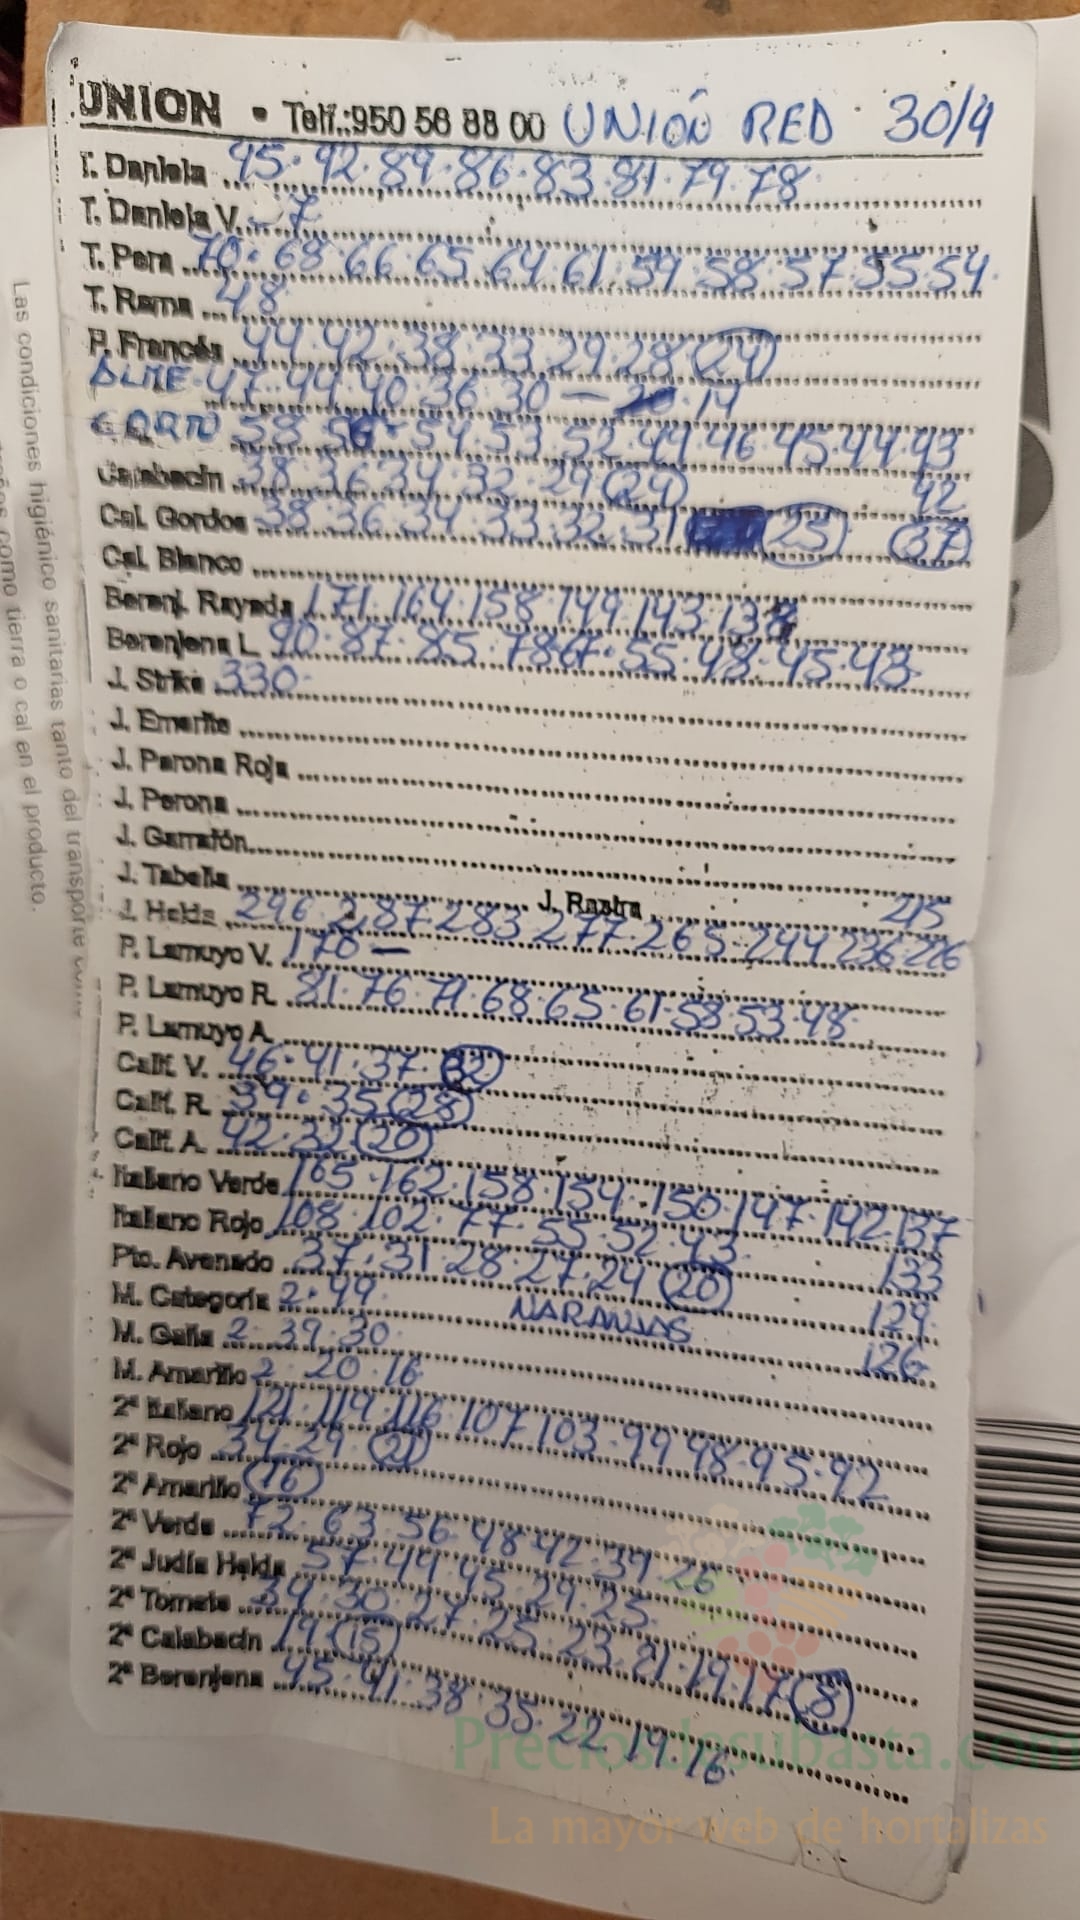 UNION • Telf.:950 56 88 00 UNIÓN RED 30/4
T. Daniela 95·92·89·86·83·81·79·78
T. Daniela V.
T. Pera 70·68·66·65·64·61·59·58·57·55·54
T. Rama 48
P. Francés 44·42·38·33·29·28 (24)
ALME 47·44·40·36·30 — 14
CORTO 58·56·54·53·52·49·46·45·44·43
Calabacín 38·36·34·32·29 (24) 42
Cal. Gordos 38·36·34·33·32·31 (25) (37)
Cal. Blanco
Berenj. Rayada 171·164·158·149·143·138
Berenjena L. 90·87·85·78·67·55·48·45·43
J. Strike 330
J. Emerite
J. Perona Roja
J. Perona
J. Garrafón
J. Tabella J. Rastra 215
J. Helda 296·287·283·277·265·244·236·226
P. Lamuyo V. 170 —
P. Lamuyo R. 81·76·71·68·65·61·58·53·48
P. Lamuyo A.
Calif. V. 46·41·37·(32)
Calif. R. 39·35 (28)
Calif. A. 42·32 (20)
Italiano Verde 165·162·158·154·150·147·142·137
Italiano Rojo 108·102·77·55·52·43 133
Pto. Avenado 37·31·28·27·24 (20) 129
M. Categoría 2·99 NARANJAS 126
M. Galia 2·39·30
M. Amarillo 2·20·16
2ª Italiano 121·119·116·107·103·99·98·95·92
2ª Rojo 34·29·(21)
2ª Amarillo (16)
2ª Verde 72·63·56·48·42·39·26
2ª Judía Helda 57·49·45·29·25
2ª Tomate 34·30·27·25·23·21·19·17 (8)
2ª Calabacín 19 (15)
2ª Berenjena 45·41·38·35·22·19·16
Las condiciones higiénico sanitarias tanto del transporte
como tierra o cal en el producto.
Preciosdesubasta.com
La mayor web de hortalizas